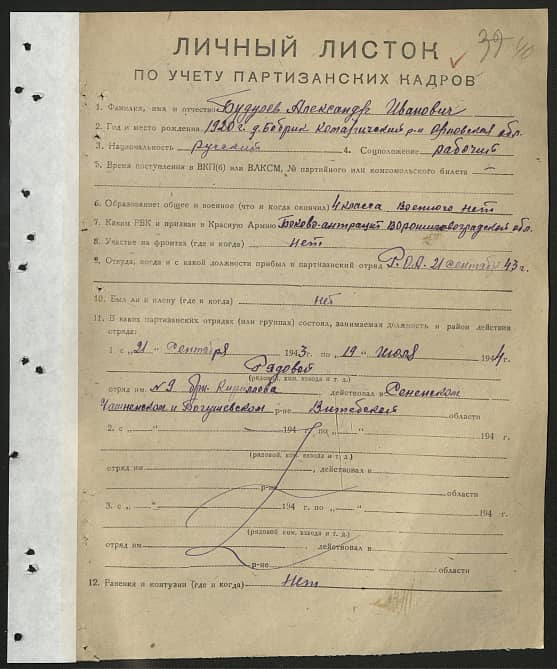 39 40
ЛИЧНЫЙ ЛИСТОК
ПО УЧЕТУ ПАРТИЗАНСКИХ КАДРОВ
1. Фамилия, имя и отчество Будуев Александр Иванович
2. Год и место рождения 1920 г. д. Бобрик Комаричский р-н Орловская обл.
3. Национальность русский 4. Соцположение рабочий
5. Время поступления в ВКП(б) или ВЛКСМ, № партийного или комсомольского билета —
6. Образование: общее и военное (что и когда окончил) 4 класса Военного нет
7. Каким РВК и призван в Красную Армию Боково-антрацит Ворошиловоградской обл.
8. Участие на фронтах (где и когда) нет
9. Откуда, когда и с какой должности прибыл в партизанский отряд Р.О.А. 21 сентября 43 г.
10. Был ли в плену (где и когда) нет
11. В каких партизанских отрядах (или группах) состоял, занимаемая должность и район действия
отряда:
1. с „21" Сентября 1943 г. по „19" июля 1944 г.
Рядовой
(рядовой, ком. взвода и т. д.)
отряд им. №9 бриг. Кириллова действовал в Сененском
Чашненском и Богушевском р-не Витебской области
2. с „ — " 194 г. по „ — " 194 г.
(рядовой, ком. взвода и т. д.)
отряд им. , действовал в
р-не области
3. с „ — " 194 г. по „ — " 194 г.
(рядовой ком. взвода и т. д.)
отряд им. , действовал в
р-не области
12. Ранения и контузии (где и когда) Нет